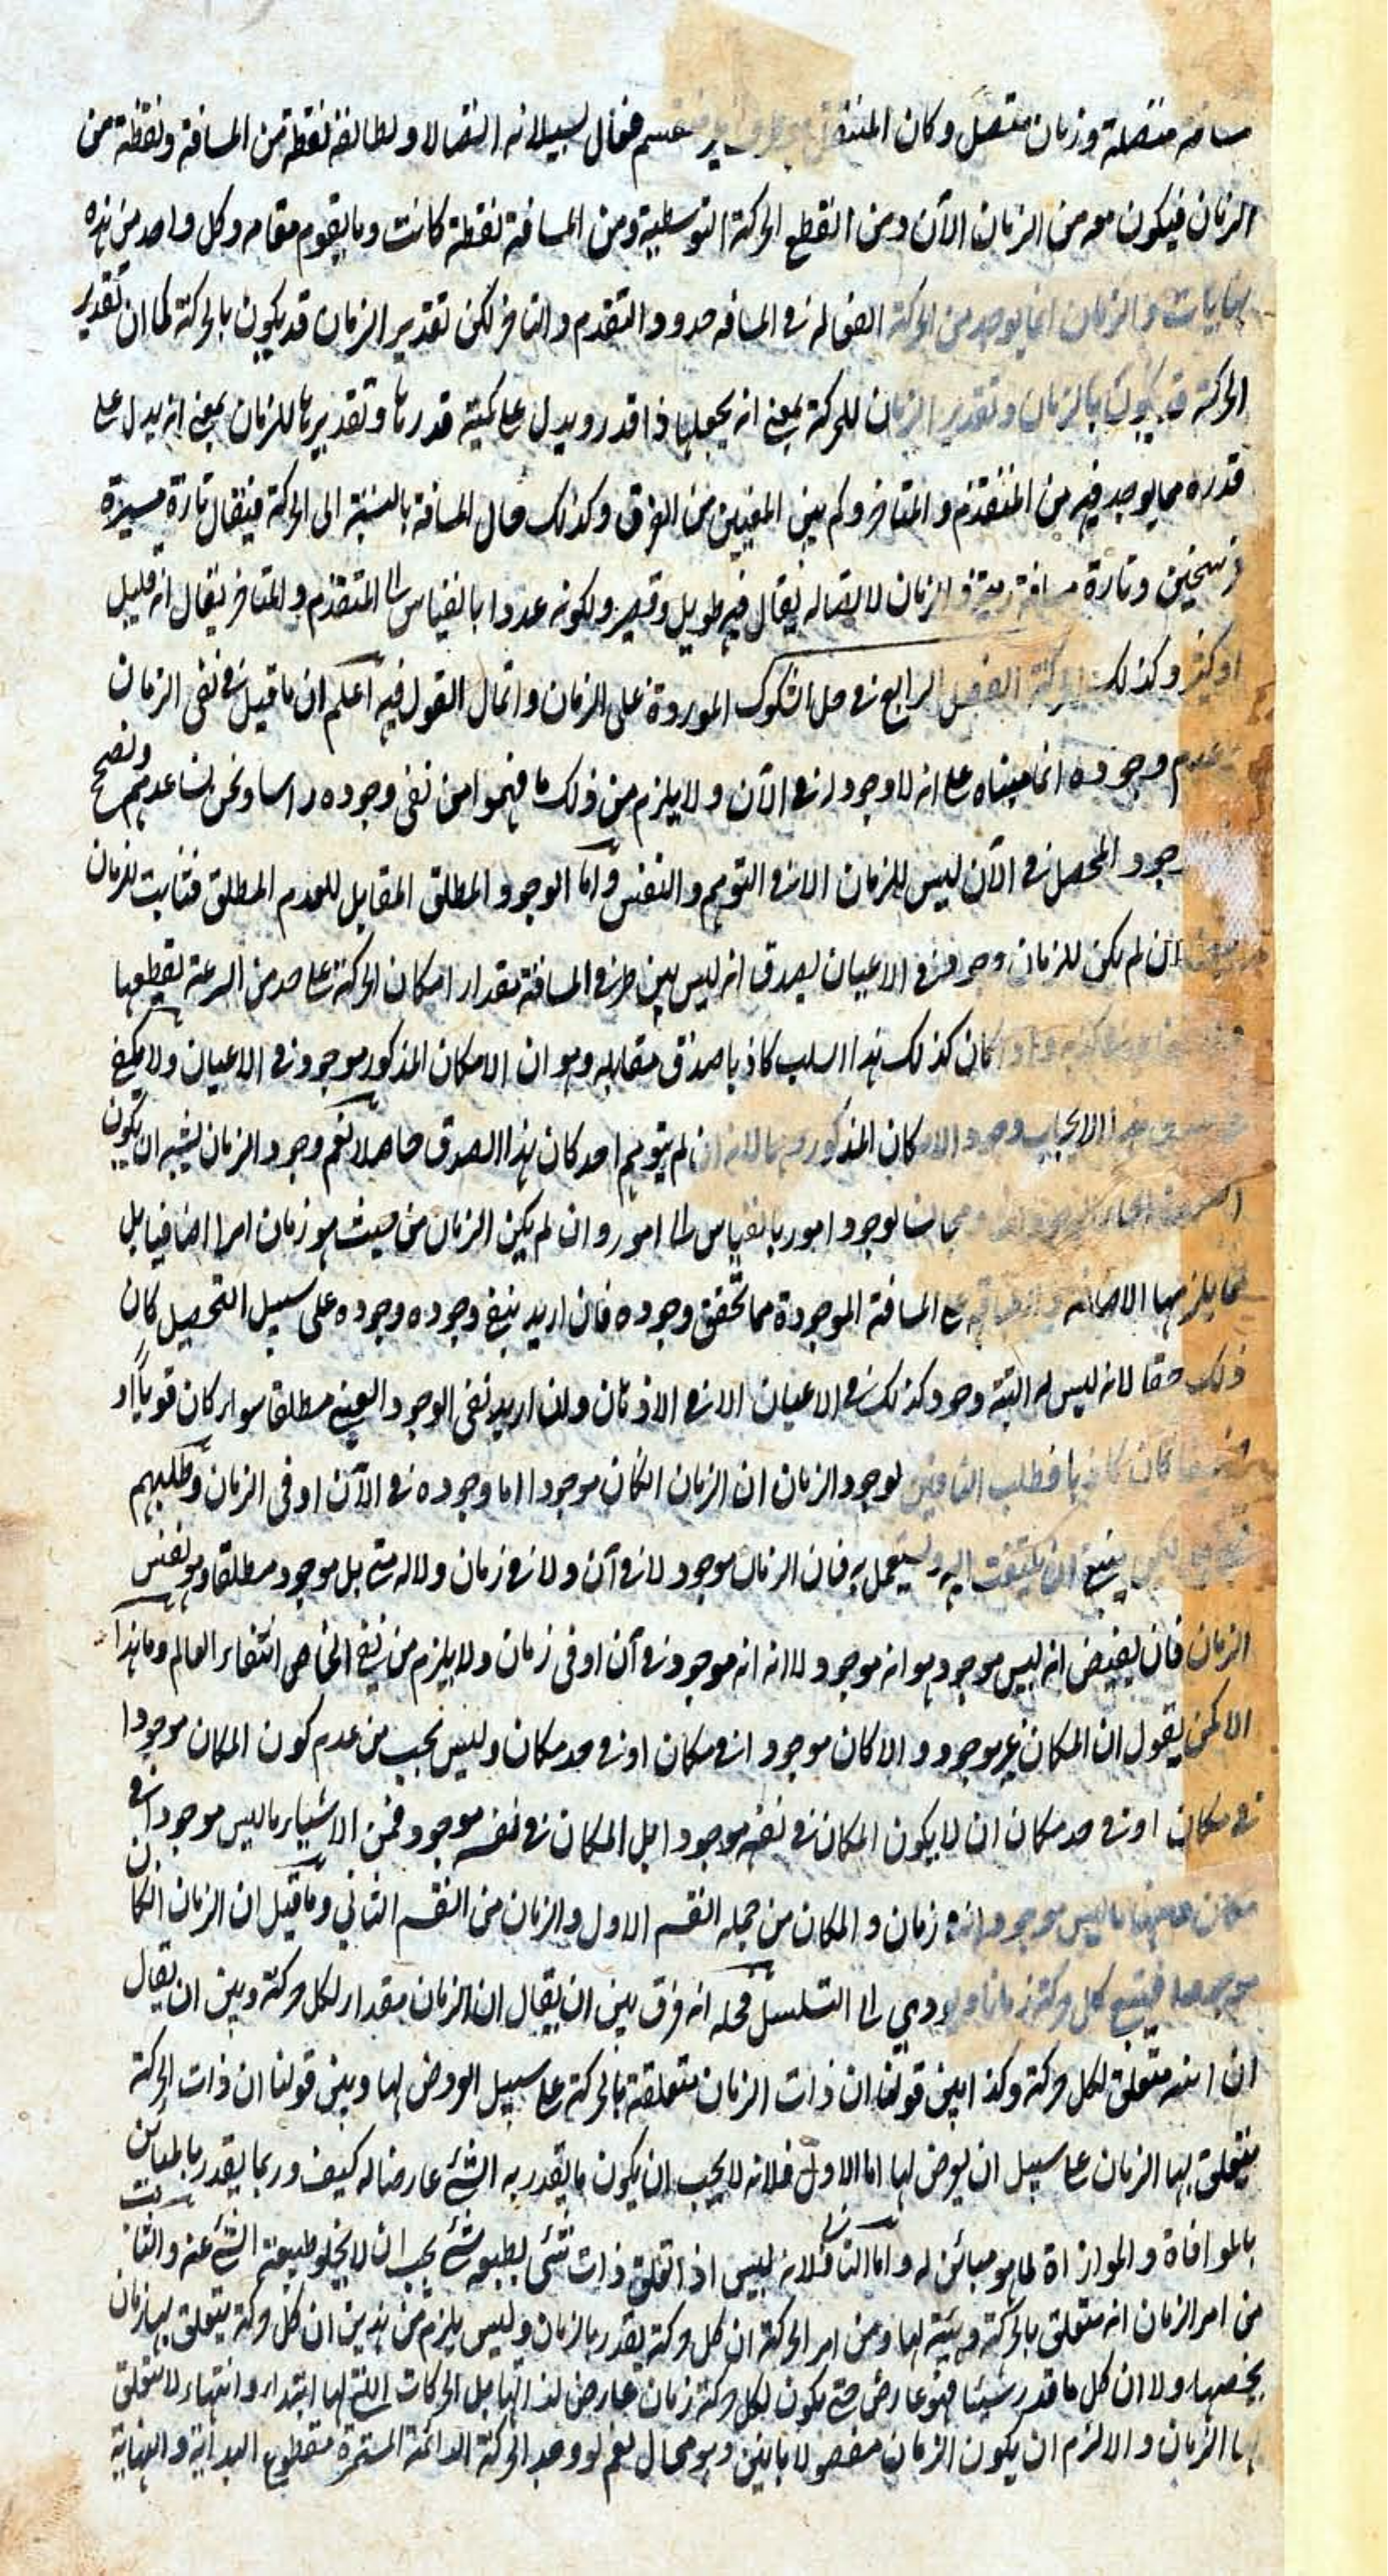 مسافة متصلة وزمان متصل وكان المنتقل فعال لسيلانه اتصالا ويطابقه نقطة من المسافة ونقطة من
الزمان فيكون معه من الزمان الآن ومن القطع الحركة التوسطية ومن المسافة نقطة كانت وما يقوم مقامه وكل واحد من هذه
نهايات والزمان انما يوجد من الحركة في المسافه حدود التقدم والتاخر لكن تقدير الزمان قد يكون بالحركة كما ان تقدير
الحركة قد يكون بالزمان وتقدير الزمان للحركة بمعنى انه يجعلها ذا قدر ويدل على كمية قدرها وتقديرها للزمان بمعنى انه يدل على
قدره مما يوجد فيه من المتقدم والمتاخر وكم بين المعنيين من الفرق وكذلك حال المسافة بالنسبة الى الحركة فيقال تارة مسيرة
فرسخين وتارة مسافة رمية والزمان لاتصاله يقال فيه طويل وقصير ولكونه عددا بالقياس الى المتقدم والمتاخر يقال انه قليل
او كثير وكذلك الحركة الفصل الرابع في حل الشكوك الموردة على الزمان واتمال القول فيه اعلم ان ما قيل في نفى الزمان
عدم وجوده انما مبناه على انه لا وجود له في الآن ولا يلزم من ذلك ما فهموا من نفى وجوده راسا ونحن نساعدهم ونصحح
وجود المحصل في الآن ليس للزمان الا في التوهم والنفس واما الوجود المطلق المقابل للعدم المطلق فثابت للزمان
ان لم يكن للزمان وجود في الاعيان يصدق انه ليس بين طرفى المسافة مقدار امكان الحركة على حد من السرعة يقطعها
واذا كان كذلك هذا السلب كاذبا صدق مقابله وهو ان الامكان المذكور موجود في الاعيان ولا يكفى
هذا الايجاب وجود الامكان المذكور لانه ان لم يتوهم احد كان هذا الصدق حاصلا نعم وجود الزمان يشبه ان يكون
لوجود امور بالقياس الى امور وان لم يكن الزمان من حيث هو زمان امرا اضافيا بل
مما يلزمها الاضافه وانطباقه على المسافة الموجودة مما تحقق وجوده فان اريد بنفى وجوده وجوده على سبيل التحصيل كان
ذلك حقا لانه ليس له البتة وجود كذلك في الاعيان الا في الاذهان وان اريد نفى الوجود العينى مطلقا سواء كان قويا او
ضعيفا كان كاذبا فطلب النافين لوجود الزمان ان الزمان ان كان موجودا اما وجوده في الآن او فى الزمان وطلبهم
ينبغى ان يلتفت اليه ويستعمل به فان الزمان موجود لا في آن ولا في زمان ولا له متى بل موجود مطلقا وهو نفس
الزمان فان نقيض انه ليس موجود هو انه موجود لا انه انه موجود في آن او فى زمان ولا يلزم من نفى الخاص انتفاء العام وما هذا
الا كمن يقول ان المكان غير موجود والا كان موجودا في مكان او في حد مكان وليس يجب من عدم كون المكان موجودا
في مكان او في حد مكان ان لا يكون المكان في نفسه موجودا بل المكان في نفسه موجود فمن الاشياء ما ليس موجودا في
مكان ومنها ما ليس موجودا في زمان والمكان من جمله القسم الاول والزمان من القسم الثانى وما قيل ان الزمان ان كان
موجودا فيتبع كل حركة زمان ويودي الى التسلسل فحله انه فرق بين ان يقال ان الزمان مقدار لكل حركة وبين ان يقال
ان انيته متعلق بكل حركة وكذا بين قولنا ان ذات الزمان متعلقة بالحركة على سبيل العروض لها وبين قولنا ان ذات الحركة
متعلق بها الزمان على سبيل ان يعرض لها اما الاول فلانه لا يجب ان يكون ما يقدر به الشئ عارضا له كيف وربما يقدر بالمباين
بالموافاة والموازاة لما هو مبائن له واما الثانى فلانه ليس اذا تعلق ذات شئ بطبيعة شئ يجب ان لا يخلو طبيعة الشئ عنه والثابت
من امر الزمان انه متعلق بالحركة وهيئة لها ومن امر الحركة ان كل حركة يقدر بالزمان وليس يلزم من هذين ان كل حركة يتعلق بها زمان
يخصها ولا ان كل ما قدر شيئا فهو عارض حتى يكون لكل حركة زمان عارض لذاتها بل الحركات التى لها ابتداء وانتهاء لا يتعلق
بها الزمان والا لزم ان يكون الزمان مفصولا بانين وهو محال نعم لو وجد الحركة الدائمة المستمرة مقطوع البداية والنهاية